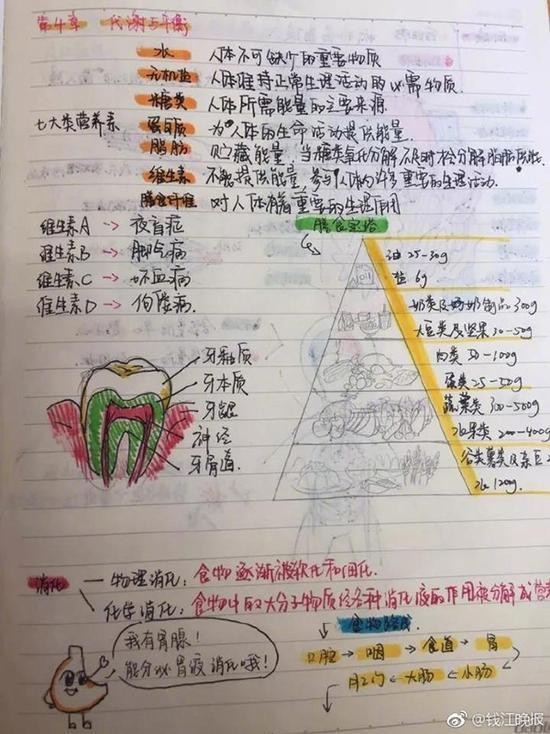 第4章 代谢与平衡
七大类营养素
水 人体不可缺少的重要物质
无机盐 人体维持正常生理活动的必需物质.
糖类 人体所需能量的主要来源
蛋白质 为人体的生命活动提供能量.
脂肪 贮藏能量,当糖类氧化分解不足时
维生素 不能提供能量,参与人体内许多重要的生理活动.
膳食纤维 对人体有着重要的生理作用
维生素A → 夜盲症
维生素B → 脚气病
维生素C → 坏血病
维生素D → 佝偻病
膳食宝塔
油 25-30g
盐 6g
奶类及奶制品 300g
大豆类及坚果 30-50g
肉类 50-100g
蛋类 25-50g
蔬菜类 300-500g
水果类 200-400g
谷类薯类及杂豆
水 1200g
牙釉质
牙本质
牙龈
神经
牙骨质
消化
物理消化:食物逐渐被软化和细化.
化学消化:食物中的大分子物质经各种消化液的作用被分解成营
我有胃腺!
能分泌胃液消化哦!
口腔→咽→食道→胃
肛门←大肠←小肠
@钱江晚报